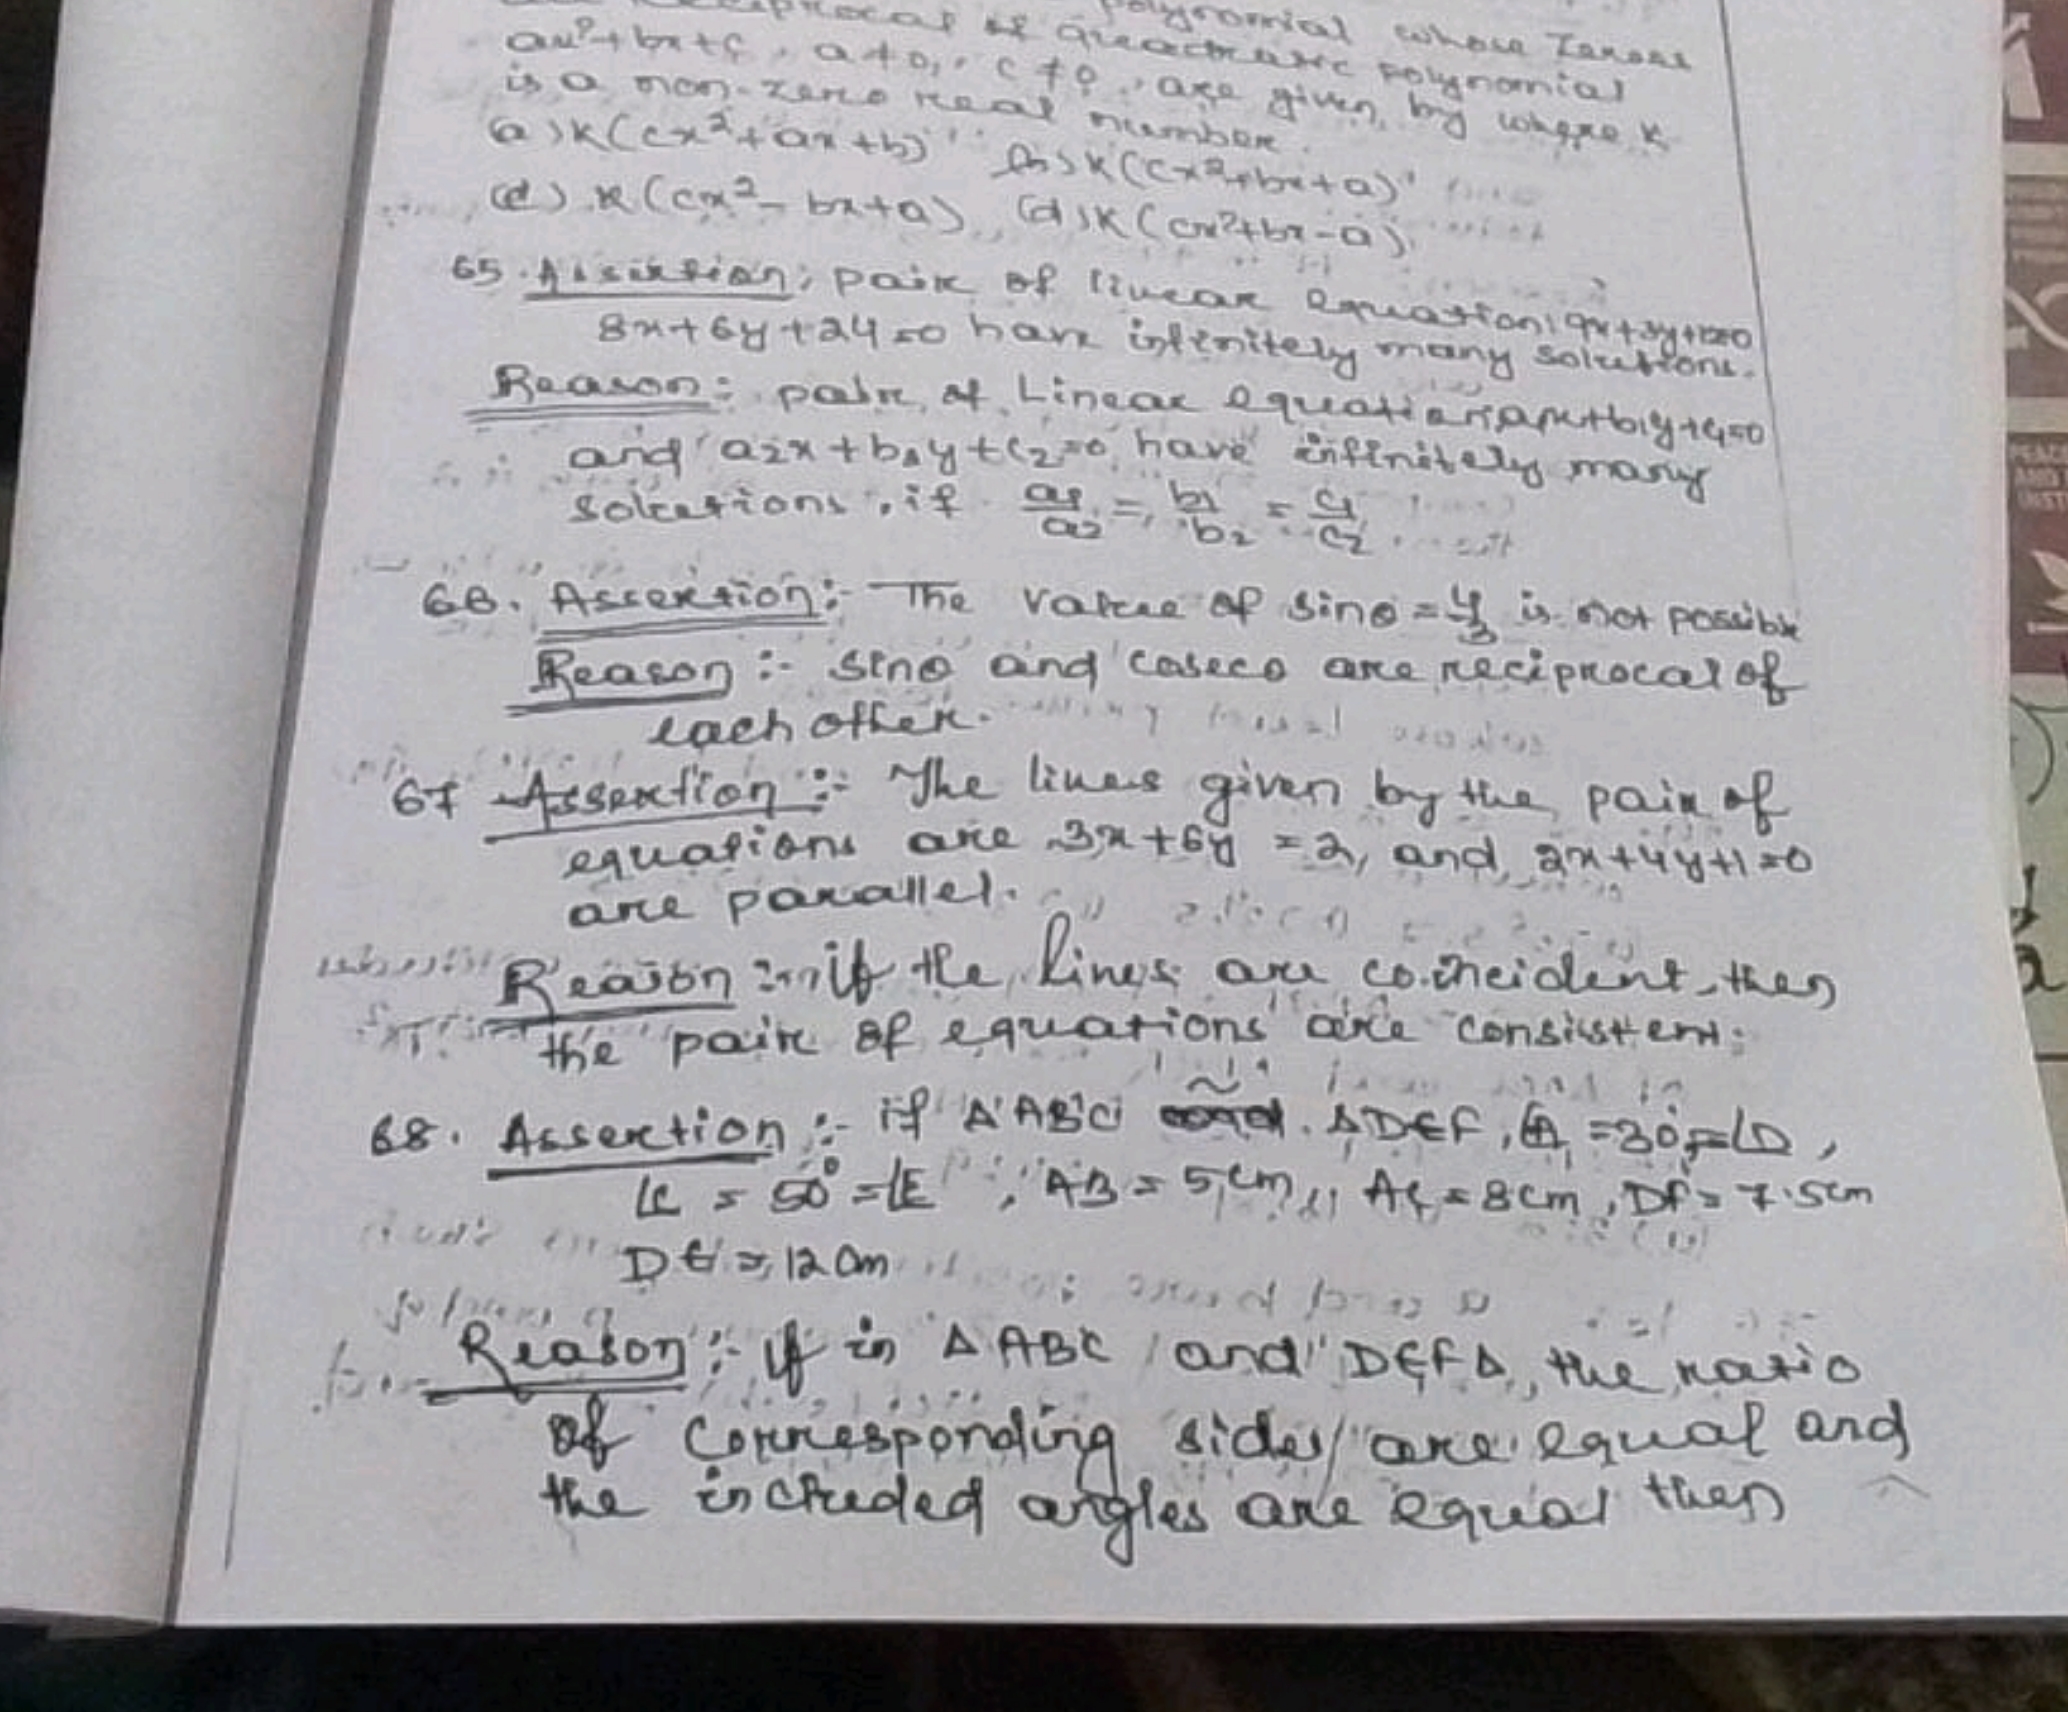 polynomial whose zeroes
reciprocal of quadratic polynomial
ax²+bx+c, a≠0, c≠0, are given by where k
is a non-zero real number.
(a) k(cx²+ax+b) (b) k(cx²+bx+a)
(c) k(cx²-bx+a) (d) k(cx²+bx-a)
65. Assertion: pair of linear equation: 9x+3y+12=0
8x+6y+24=0 have infinitely many solutions.
Reason: pair of Linear equations a1x+b1y+c1=0
and a2x+b2y+c2=0 have infinitely many
solutions, if a1/a2 = b1/b2 = c1/c2
66. Assertion:- The value of sinθ = 4/3 is not possible
Reason:- sinθ and cosecθ are reciprocal of
each other.
67 Assertion:- The lines given by the pair of
equations are 3x+6y=2, and 2x+4y+1=0
are parallel.
Reason:- if the lines are coincident, then
the pair of equations are consistent.
68. Assertion:- if ΔABC ~ ΔDEF, ∠A=30°=∠D,
∠C = 50°=∠E, AB=5cm, AC=8cm, DF=7.5cm
DE=12cm
Reason:- if in ΔABC and DEFΔ, the ratio
of corresponding sides are equal and
the included angles are equal then